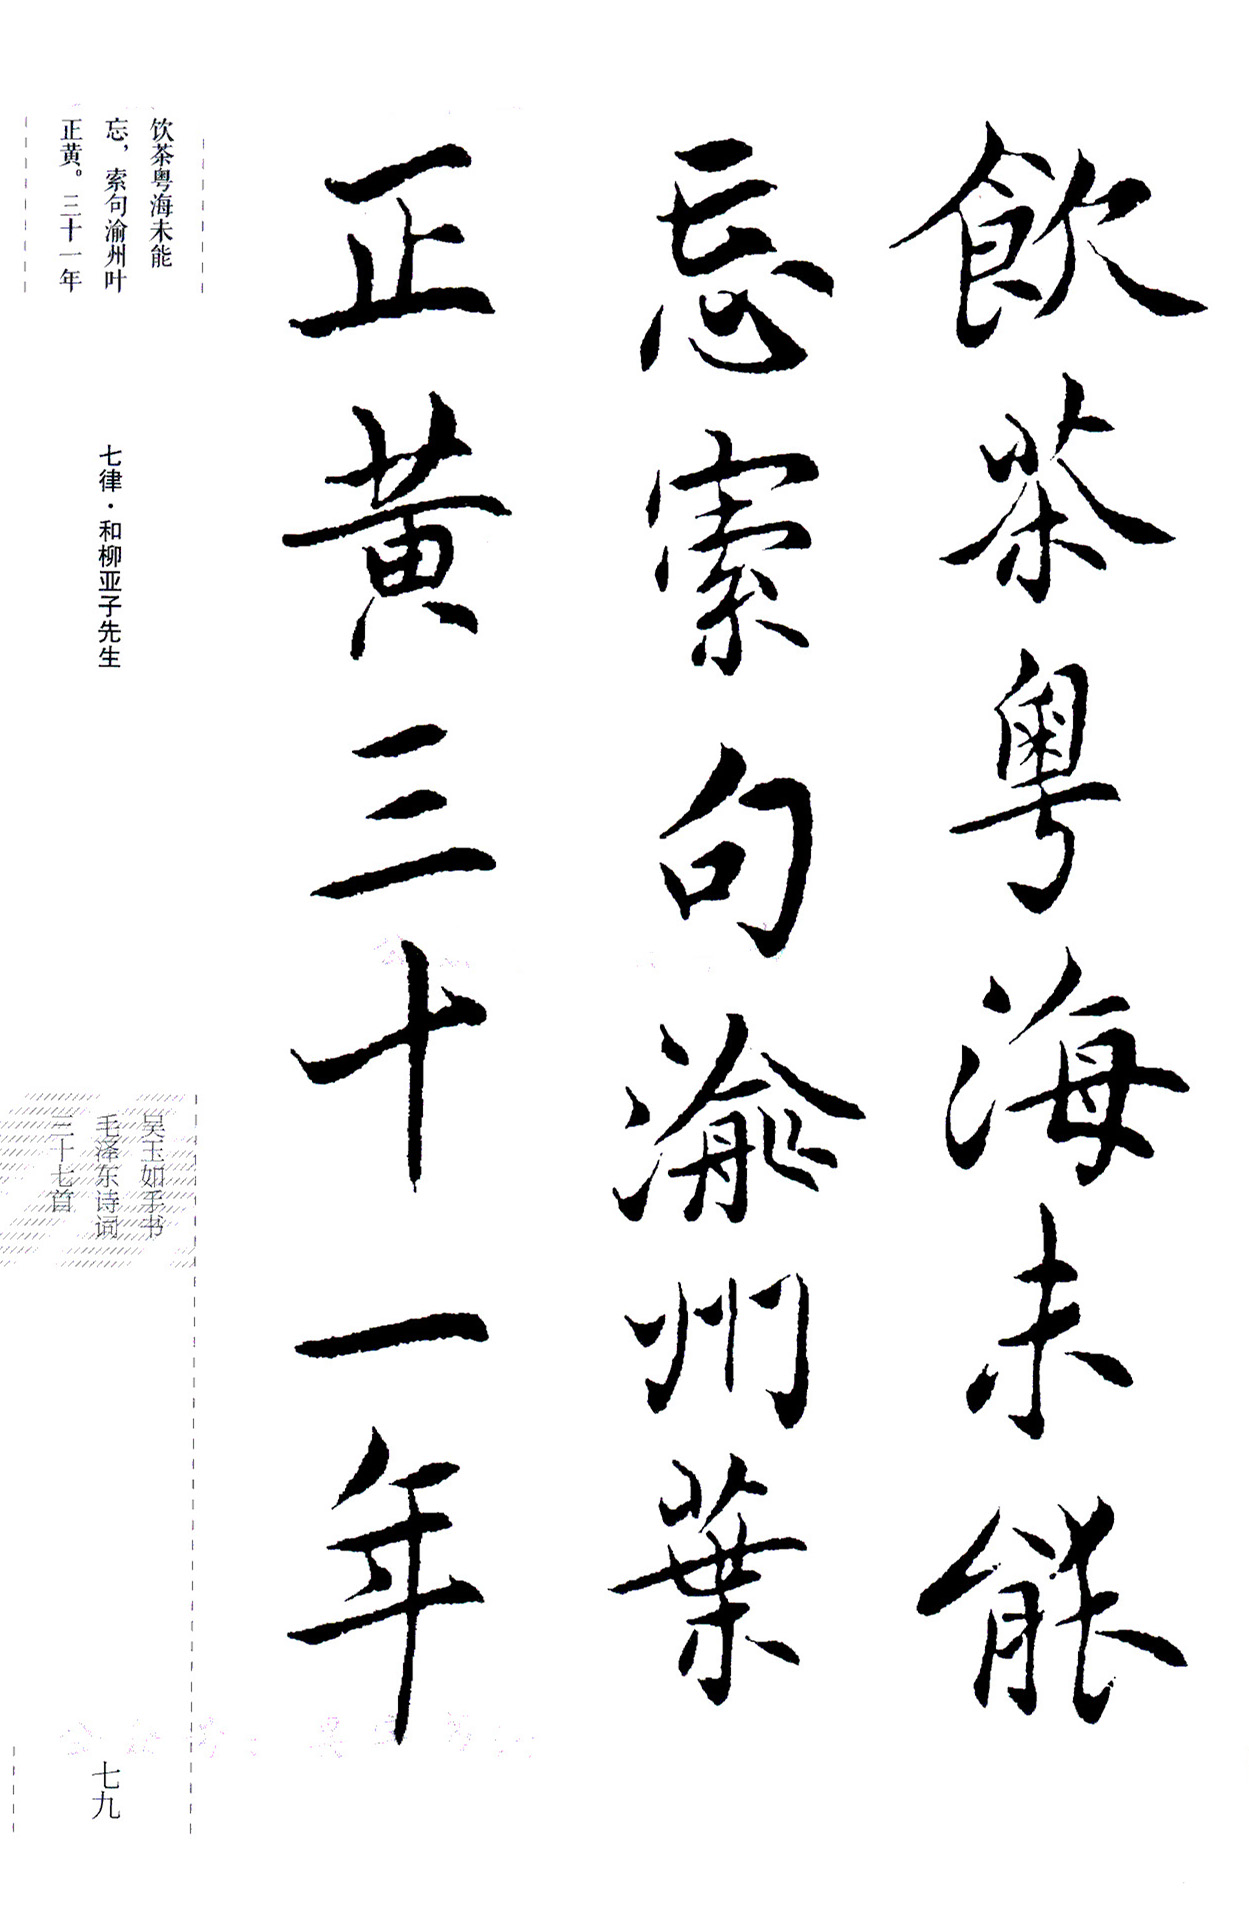 飲茶粵海未能
忘索句渝州葉
正黃三十一年
饮茶粤海未能
忘，索句渝州叶
正黄。三十一年
七律·和柳亚子先生
吴玉如手书
毛泽东诗词
三十七首
七九